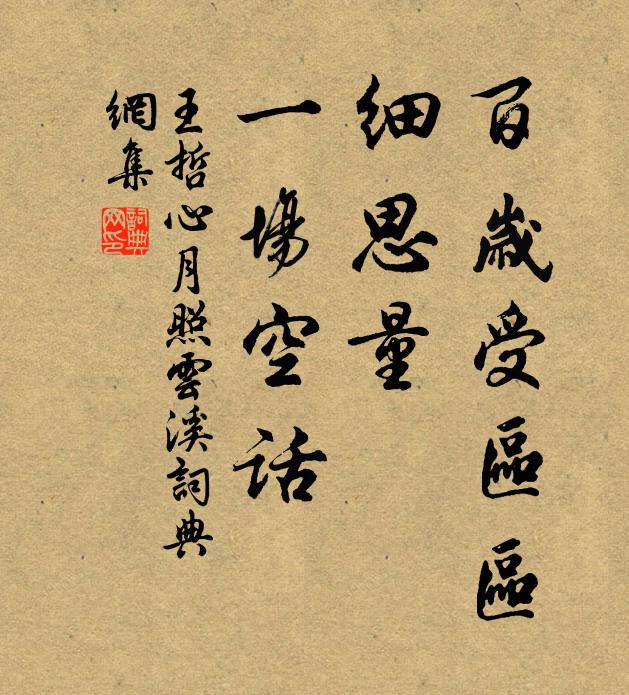 百歲受區區
細思量
一場空話
王哲心月照雲溪詞典
網集
詞典
网印